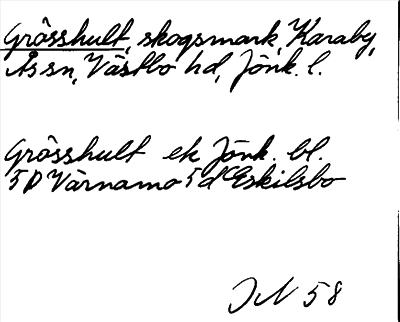 Grässhult, skogsmark, Karaby,
Ås sn, Västbo hd, Jönk. l.
Grässhult ek Jönk. bl.
5D Värnamo 5 d Eskilsbo
58